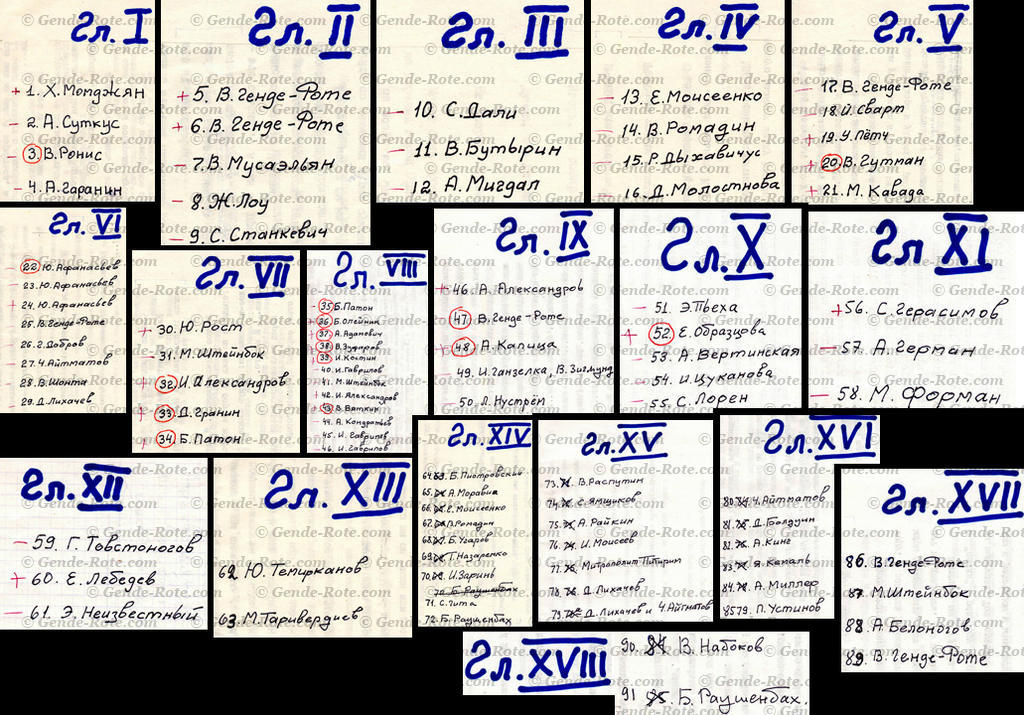 Гл. I
+ 1. Х. Момджян
- 2. А. Суткус
- 3. В. Ронис
- 4. А. Гаранин
Гл. II
+ 5. В. Генде-Роте
+ 6. В. Генде-Роте
- 7. В. Мусаэльян
- 8. Ж. Лоу
- 9. С. Станкевич
Гл. III
- 10. С. Дали
- 11. В. Бутырин
- 12. А. Мигдал
Гл. IV
- 13. Е. Моисеенко
- 14. В. Ромадин
- 15. Р. Дыхавичус
- 16. Д. Молостнова
Гл. V
- 17. В. Генде-Роте
- 18. И. Сварт
+ 19. У. Пётч
+ 20. В. Гутман
+ 21. М. Кавада
Гл. VI
- 22 Ю. Афанасьев
- 23. Ю. Афанасьев
+ 24. Ю. Афанасьев
- 25. В. Генде-Роте
- 26. Г. Добров
- 27. Ч. Айтматов
- 28. В. Шонта
- 29. Д. Лихачев
Гл. VII
+ 30. Ю. Рост
- 31. М. Штейнбок
+ 32 И. Александров
+ 33 Д. Гранин
+ 34 Б. Патон
Гл. VIII
35 Б. Патон
36 Б. Олейник
37 А. Адамович
38 В.
39 И. Костин
40. И. Гаврилов
41. М. Штейнбок
42. И. Александров
43 В. Вяткин
44. А. Кондратьев
45. И. Гаврилов
46. И. Гаврилов
Гл. IX
+ 46. А. Александров
47 В. Генде-Роте
+ 48 А. Капица
49. И. Ганзелка, В. Зигмунд
- 50. Л. Нустрём
Гл. X
- 51. Э. Пьеха
+ 52. Е. Образцова
- 53. А. Вертинская
- 54. И. Цуканова
- 55. С. Лорен
Гл XI
+ 56. С. Герасимов
- 57. А. Герман
- 58. М. Форман
Гл. XII
- 59. Г. Товстоногов
+ 60. Е. Лебедев
- 61. Э. Неизвестный
Гл. XIII
62 Ю. Темирканов
63. М. Таривердиев
Гл. XIV
64. Б. Пиотровский
65. А. Моравиа
66. Е. Моисеенко
67. В. Ромадин
68. Б. Угаров
69. Т. Назаренко
70. И. Заринь
70. Б. Раушенбах
71. С. Гита
72. Б. Раушенбах
Гл. XV
73. В. Распутин
74. С. Ямщиков
75. А. Райкин
76. И. Моисеев
77. Митрополит Питирим
78. Д. Лихачев
79. Д. Лихачев и Ч. Айтматов
Гл. XVI
80. Ч. Айтматов
81. Д. Болдуин
82. А. Кинг
83. Я. Кемаль
84. А. Миллер
85 79. П. Устинов
Гл. XVII
86. В. Генде-Роте
87. М. Штейнбок
88. А. Белоногов
89. В. Генде-Роте
Гл. XVIII
90. 84 В. Набоков
91 85. Б. Раушенбах.
© Gende-Rote.com